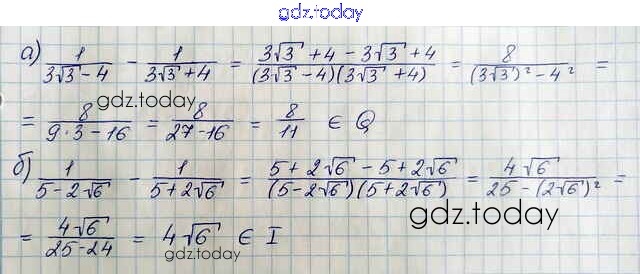 gdz.today
а) 1/(3√3 - 4) - 1/(3√3 + 4) = (3√3 + 4 - 3√3 + 4)/((3√3 - 4)(3√3 + 4)) = 8/((3√3)² - 4²) =
gdz.today
= 8/(9·3 - 16) = 8/(27 - 16) = 8/11 ∈ Q
б) 1/(5 - 2√6) - 1/(5 + 2√6) = (5 + 2√6 - 5 + 2√6)/((5 - 2√6)(5 + 2√6)) = 4√6/(25 - (2√6)²) =
gdz.today
= 4√6/(25 - 24) = 4√6 ∈ I
gdz.today